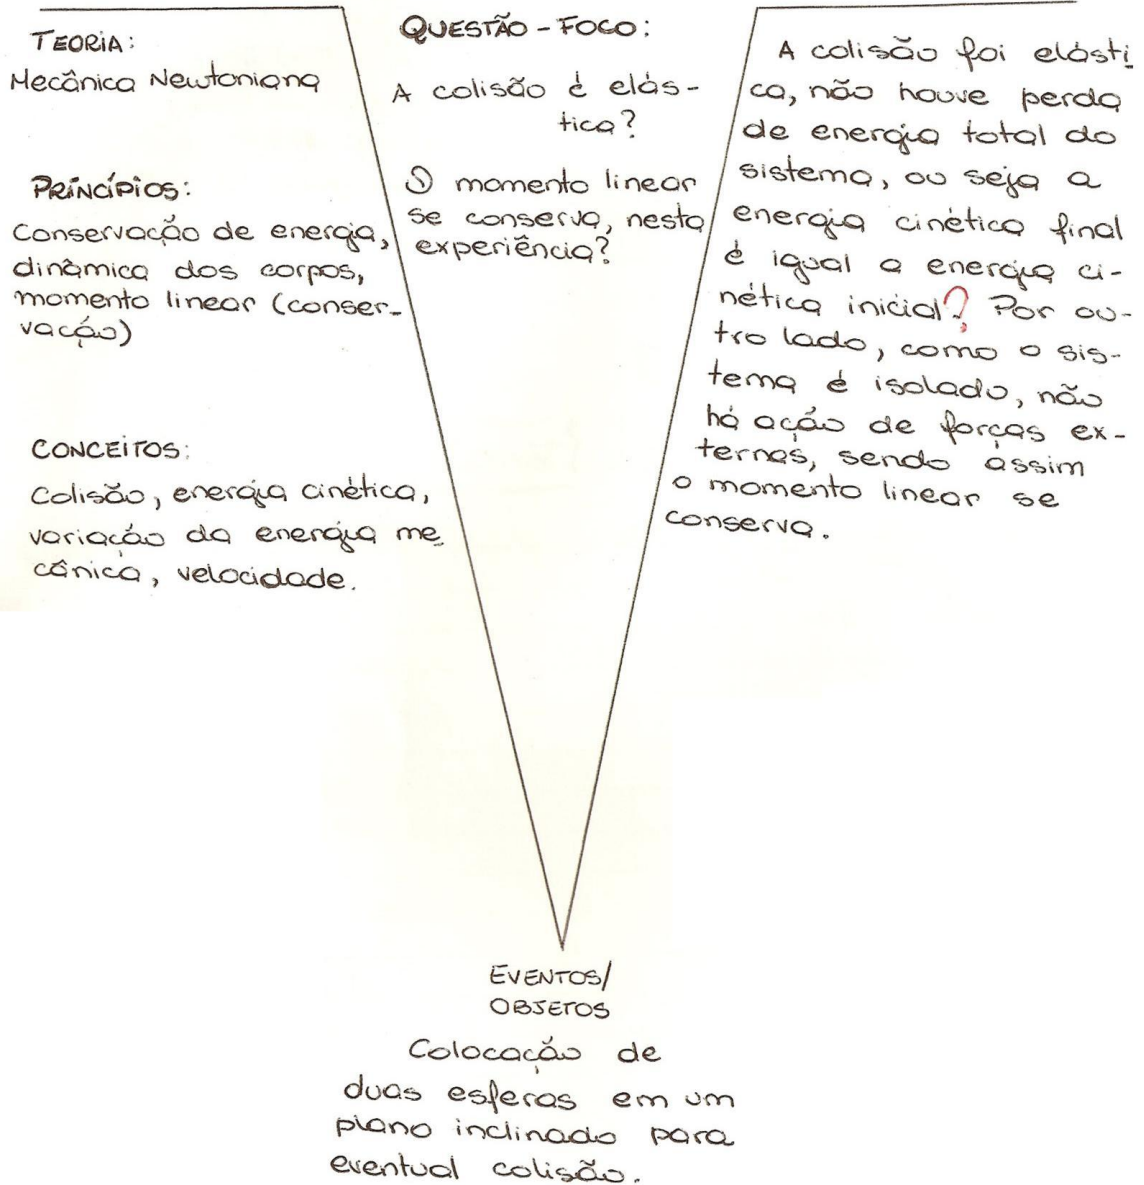 TEORIA:
Mecânica Newtoniana
PRINCÍPIOS:
Conservação de energia,
dinâmica dos corpos,
momento linear (conser-
vação)
CONCEITOS:
Colisão, energia cinética,
variação da energia me
cânica, velocidade.
QUESTÃO-FOCO:
A colisão é elás-
tica?
O momento linear
se conserva, nesta
experiência?
A colisão foi elásti
ca, não houve perda
de energia total do
sistema, ou seja a
energia cinética final
é igual a energia ci-
nética inicial? Por ou-
tro lado, como o sis-
tema é isolado, não
há ação de forças ex-
ternas, sendo assim
o momento linear se
conserva.
EVENTOS/
OBJETOS
Colocação de
duas esferas em um
plano inclinado para
eventual colisão.